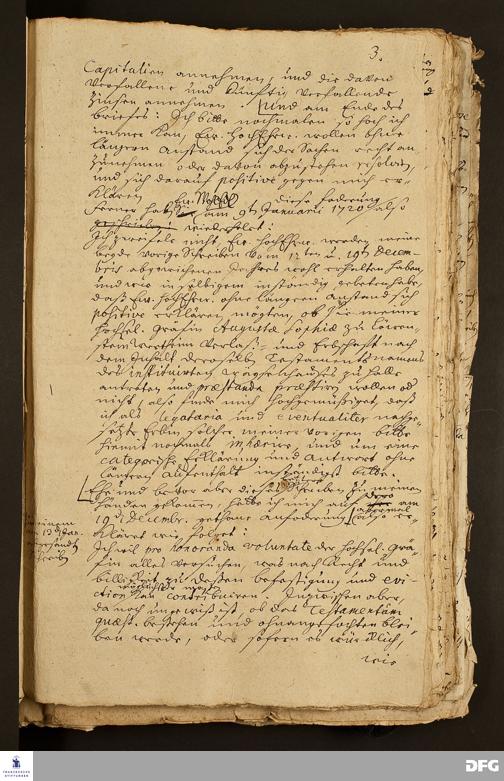 3.
Capitalien annehmen, und die davon
verfallene und künftig verfallende
Zinsen annehmen. Und am Ende des
briefes: Ich bitte nochmalen so hoch ich
immer kan, Ew. HochEhrw. wollen ohne
längern Anstand sich der Sachen recht an
zunehmen oder davon abzustehen
und sich darauf positive gegen mich er-
klären.
Ferner hab am 9ten Januarii 1720 also
diese foderung
wiederholet:
Ich zweifele nicht, Ew. HochEhrw. werden meine
beyde vorige Schreiben vom 12ten u. 19ten Decem-
bris abgewichenen Jahres wohl erhalten haben,
und wie in selbigem inständig gebeten habe,
daß Ew. HochEhrw. ohne längern Anstand sich
positive erklären mögten, ob Sie meiner
Hochsel. Gräfin Augustæ Sophiæ zu Löwen-
stein Wertheim Verlaß- und Erbschaft nach
dem Inhalt deroselben Testaments namens
des instituirten Waysenhauses zu Halle
antreten und præstanda præstiren wollen od.
nicht, also finde mich hochgemüßiget, daß
ich als Legataria und eventualiter nachge-
setzte Erbin solche meiner vorigen bitte
hiemit nochmals inhærire, und um eine
categorische Erklärung und Antwort ohne
längern Aufenthalt inständigst bitte.
Ehe und bevor aber dieses Schreiben zu meinen
Händen gekommen, hatte ich mich auf dero am
19ten Decembr. gethane anforderung also er-
kläret wie folget:
Ich will pro honoranda voluntate der Hochsel. Grä-
fin alles versuchen, was nach Recht und
billigkeit zu dessen befestigung und evi-
ction kan contribuiren. Inzwischen aber,
da noch ungewiß ist, ob das Testamentum
quæst. bestehen und ohnangefochten blei
ben werde, oder sofern es würcklich,
wie